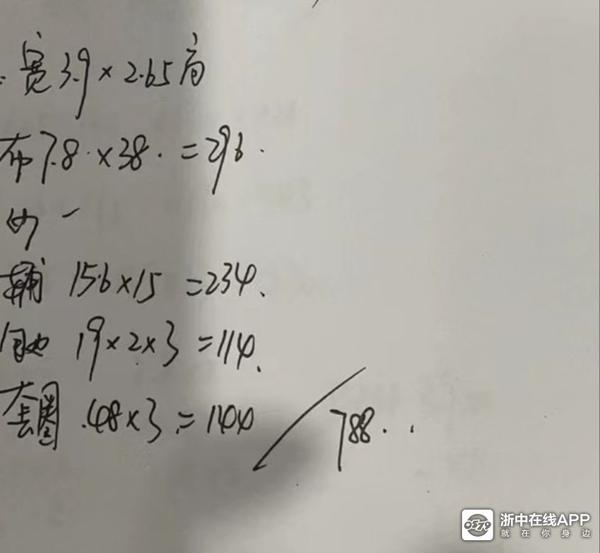 宽3.9×2.65高
布7.8×38.=296.
纱一
辅 15.6×15=234.
19×2×3=114.
套圈 48×3=144
788..
浙中在线APP
就在你身边